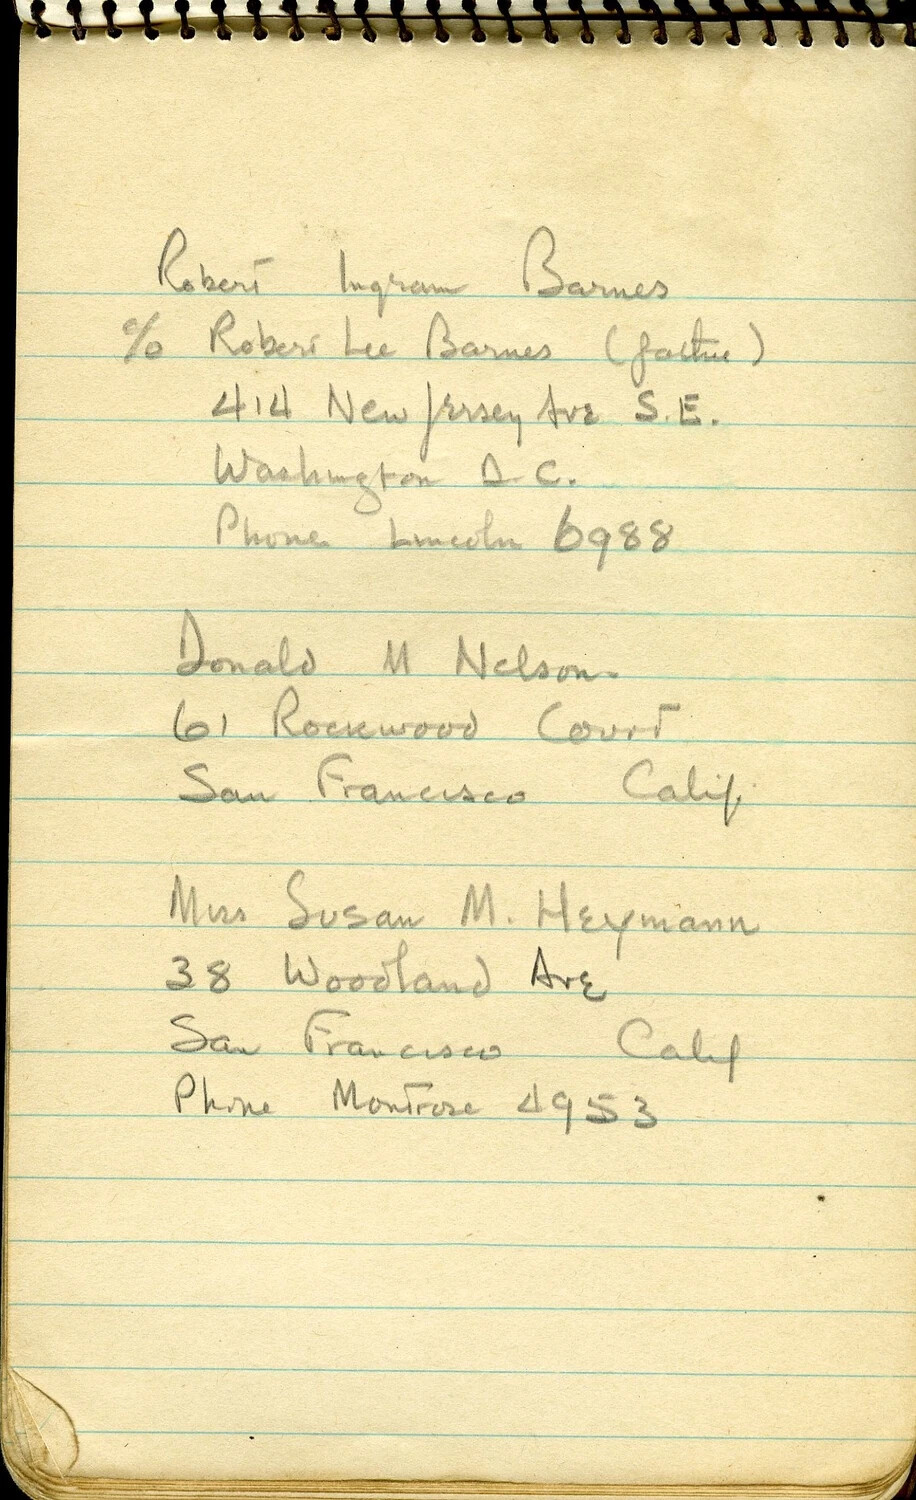 Robert Ingram Barnes
c/o Robert Lee Barnes (father)
414 New Jersey Ave S.E.
Washington D.C.
Phone Lincoln 6988
Donald M Nelson
61 Rockwood Court
San Francisco Calif.
Miss Susan M. Heymann
38 Woodland Ave
San Francisco Calif
Phone Montrose 4953